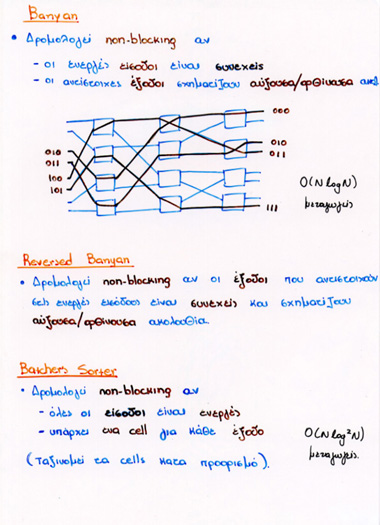 Banyan
• Δρομολογεί non-blocking αν
- οι ενεργές είσοδοι είναι συνεχείς
- οι αντίστοιχες έξοδοι σχηματίζουν αύξουσα/φθίνουσα ακολ
000
010
010
011
011
100
101
111
O(N logN)
μεταγωγείς
Reversed Banyan
• Δρομολογεί non-blocking αν οι έξοδοι που αντιστοιχούν
στις ενεργές εισόδους είναι συνεχείς και σχηματίζουν
αύξουσα/φθίνουσα ακολουθία.
Batchers Sorter
• Δρομολογεί non-blocking αν
- όλες οι είσοδοι είναι ενεργές
- υπάρχει ένα cell για κάθε έξοδο
O(N log²N)
μεταγωγείς.
(Ταξινομεί τα cells κατά προορισμό).